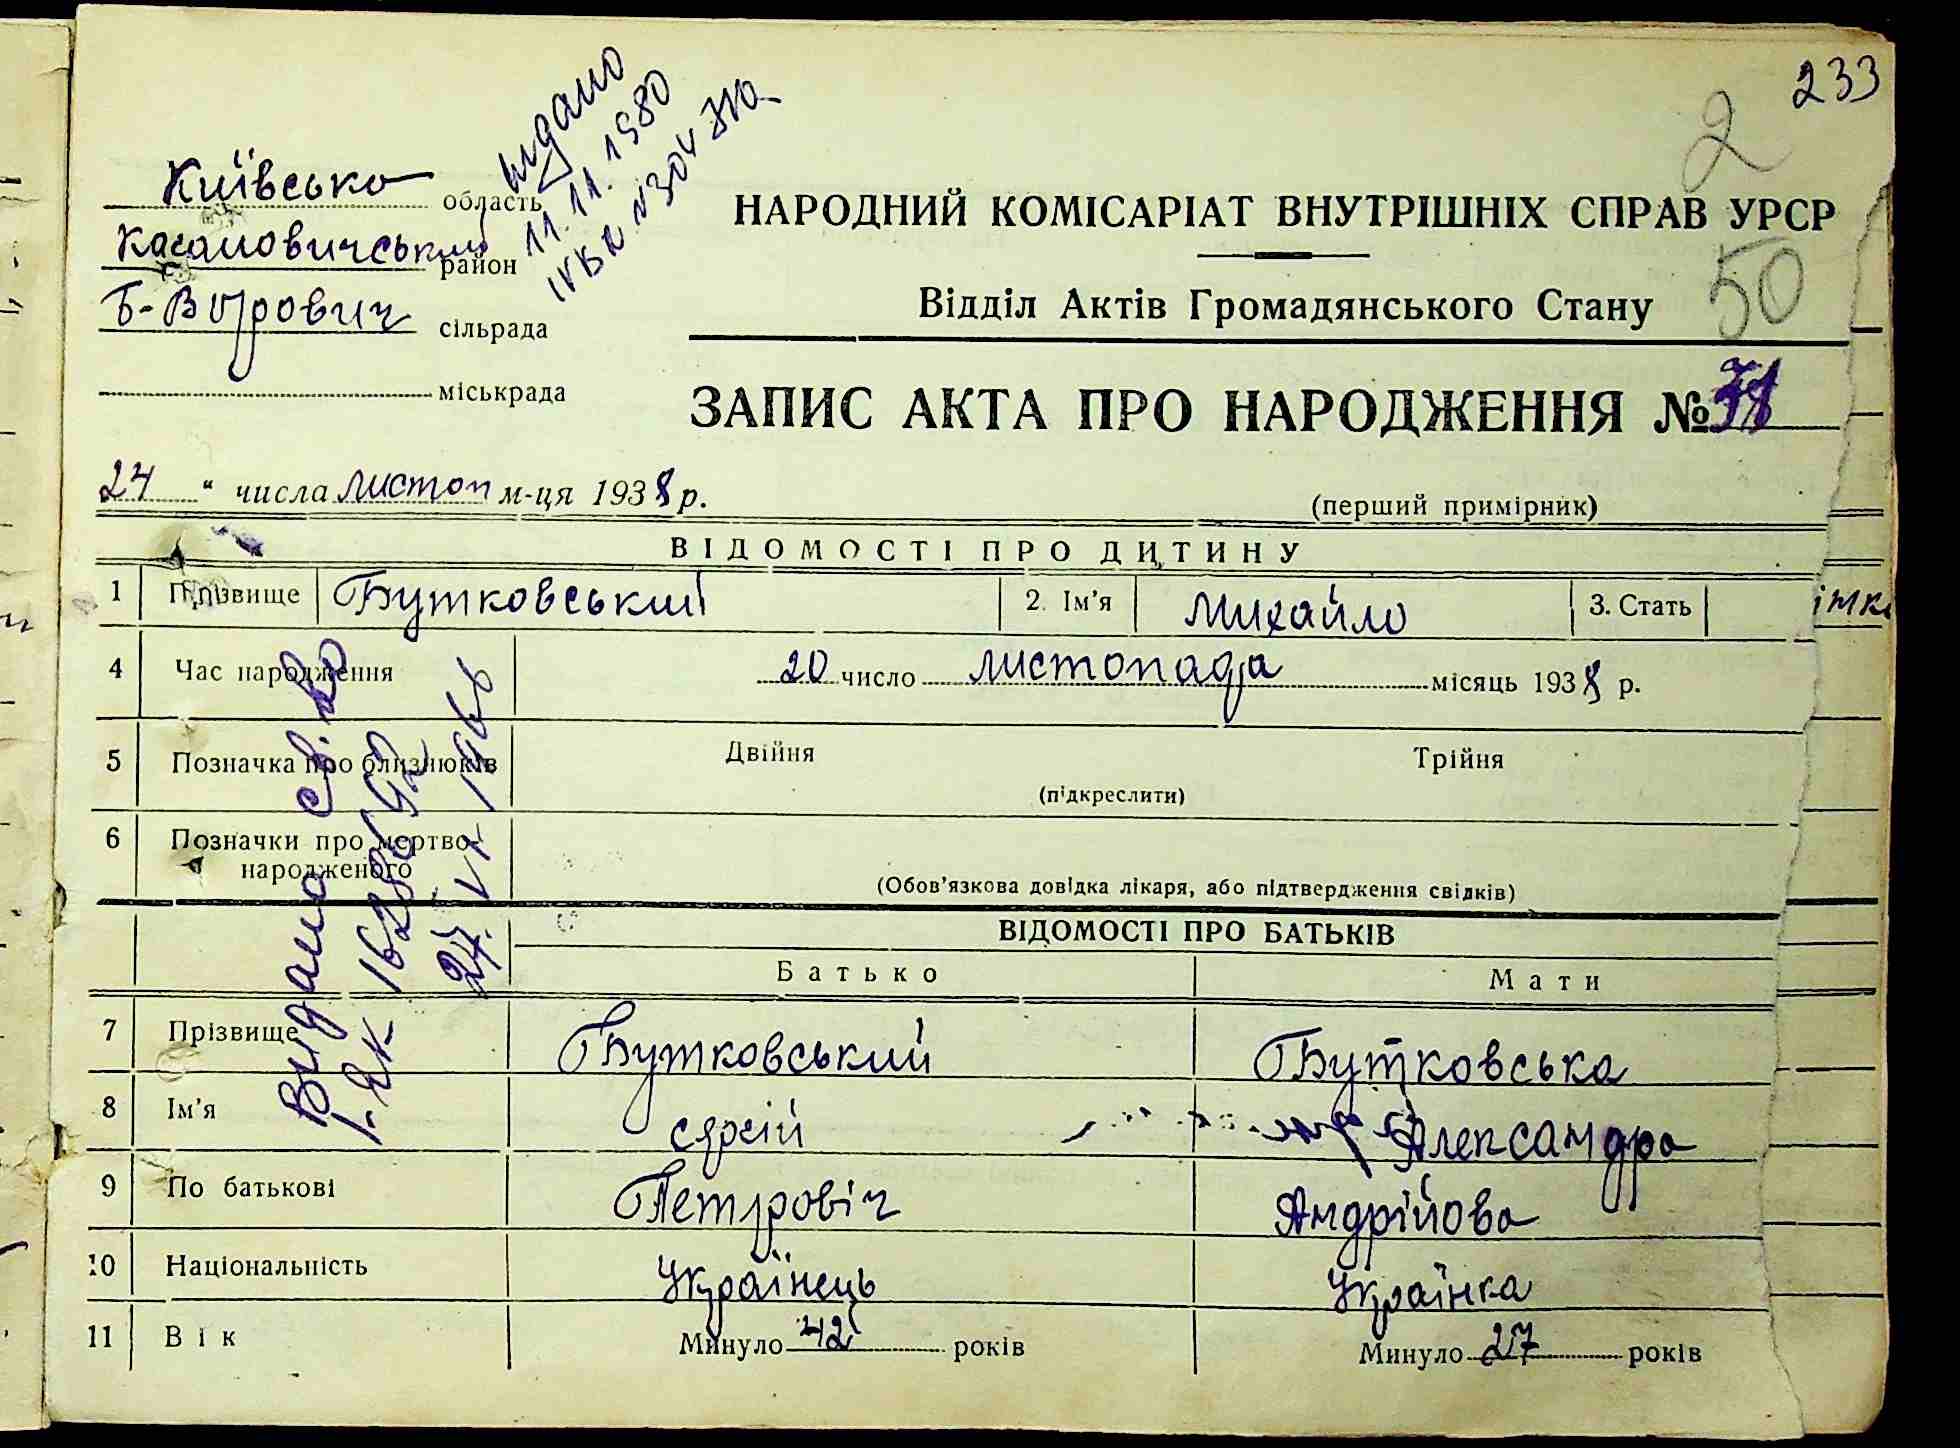 233
2
Видано
11.11.1980
Київсько область
НАРОДНИЙ КОМІСАРІАТ ВНУТРІШНІХ СПРАВ УРСР
район
50
Відділ Актів Громадянського Стану
сільрада
міськрада
ЗАПИС АКТА ПРО НАРОДЖЕННЯ №
24 " числа листоп м-ця 1938 р.
(перший примірник)
ВІДОМОСТІ ПРО ДИТИНУ
1 Прізвище Бутковський 2. Ім'я Михайло 3. Стать
4 Час народження 20 число листопада місяць 1938 р.
5 Позначка про близнюків Двійня Трійня
(підкреслити)
6 Позначки про мертво-
народженого
(Обов'язкова довідка лікаря, або підтвердження свідків)
Видано св-во
ВІДОМОСТІ ПРО БАТЬКІВ
Батько Мати
7 Прізвище Бутковський Бутковська
8 Ім'я Сергій Александра
9 По батькові Петровіч Андрійова
10 Національність Українець Українка
11 Вік Минуло 42 років Минуло 27 років